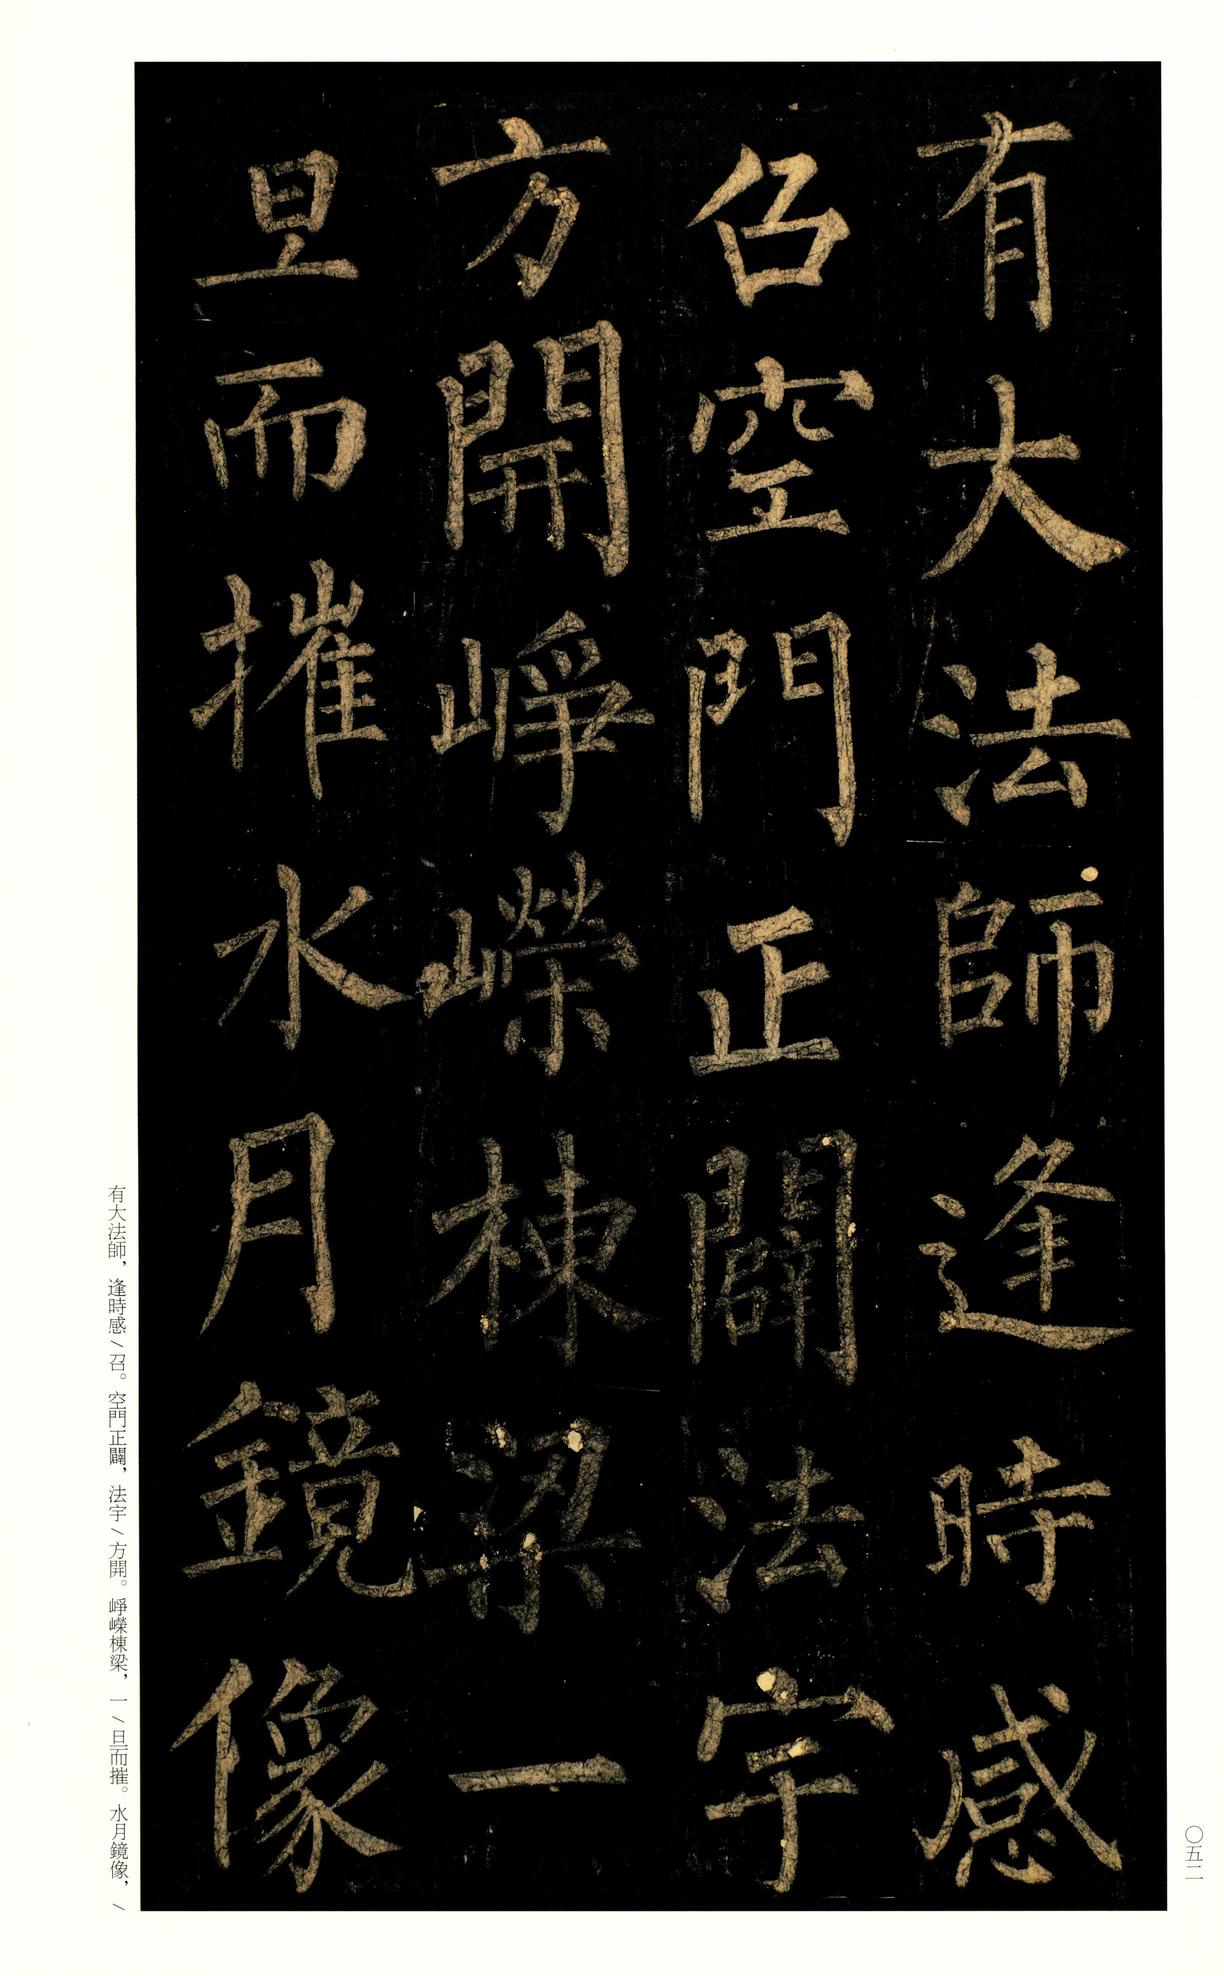 有大法師逢時感
召空門正闢法宇
方開崢嶸棟梁一
旦而摧水月鏡像
有大法師，逢時感\召。空門正闢，法宇\方開。崢嶸棟梁，一\旦而摧。水月鏡像，\
〇五二